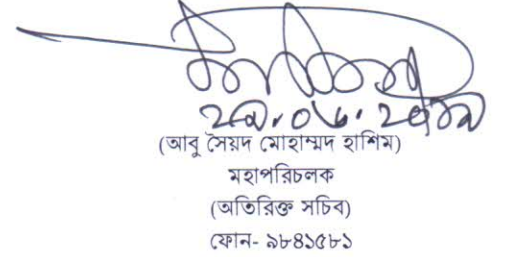 (আবু সৈয়দ মোহাম্মদ হাশিম)
মহাপরিচলক
(অতিরিক্ত সচিব)
ফোন- ৯৮৪১৫৮১